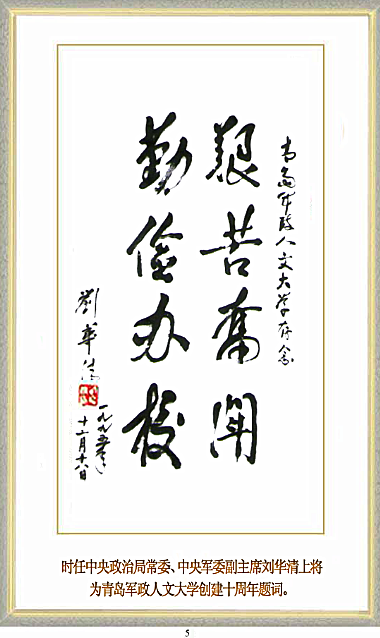 青岛军政人文大学存念
艱苦奮鬥
勤俭办校
劉華清
一九九五年
十二月十八日
时任中央政治局常委、中央军委副主席刘华清上将
为青岛军政人文大学创建十周年题词。
5